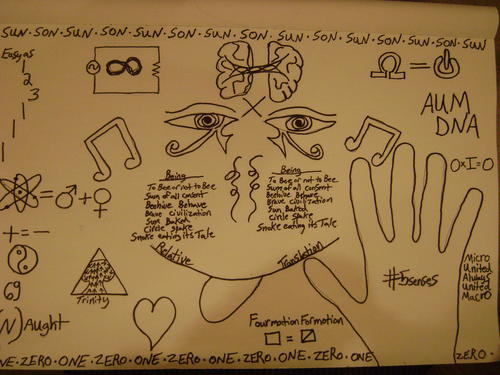 SUN · SON · SUN · SON · SUN · SON · SUN · SON · SUN · SON · SUN · SON · SUN
Easy as
1
2
3
1
1
1
Ω =
AUM
DNA
O×I=O
= ♂ + ♀
+ = -
69
(N)Aught
Trinity
Being
To Bee or not to Bee
Sum of all content
Beehive Behave
Brave civilization
Sun Baked
Circle spake
Smoke eating its Tale
Being
To Bee or not to Bee
Sum of all consent
Beehive Behave
Brave civilization
Sun Baked
Circle spake
Snake eating its Tale
Relative
Translation
#5senses
Micro
United
Always
United
Macro
Four motion Formation
=
NE · ZERO · ONE · ZERO · ONE · ZERO · ONE · ZERO · ONE · ZERO · ONE
ZERO ·